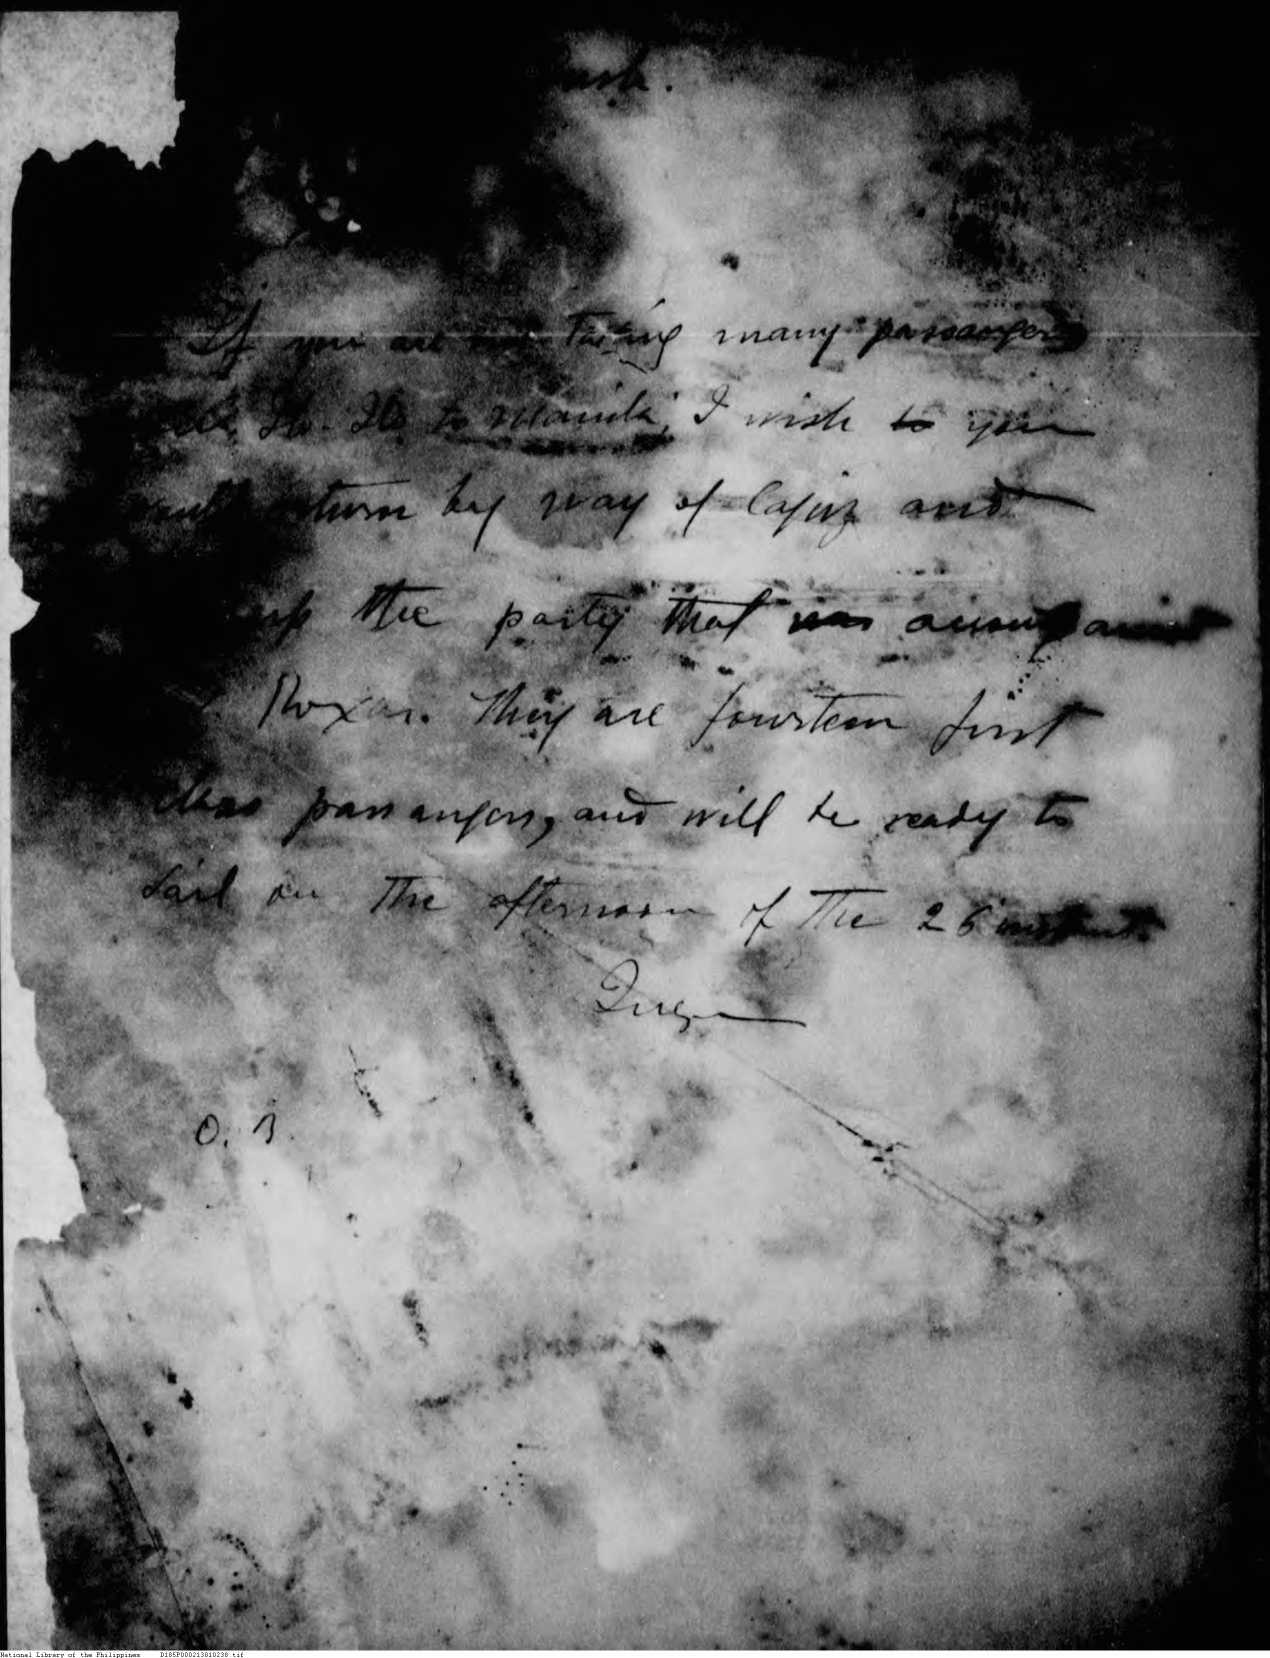 If you are not taking many passengers
Ilo-Ilo to Manila, I wish to you
return by way of Capiz and
up the party that was
Roxas. They are fourteen first
class passangers, and will be ready to
sail on the afternoon of the 26 instant.
Quezon
O. B.
National Library of the Philippines D185P000213810238.tif